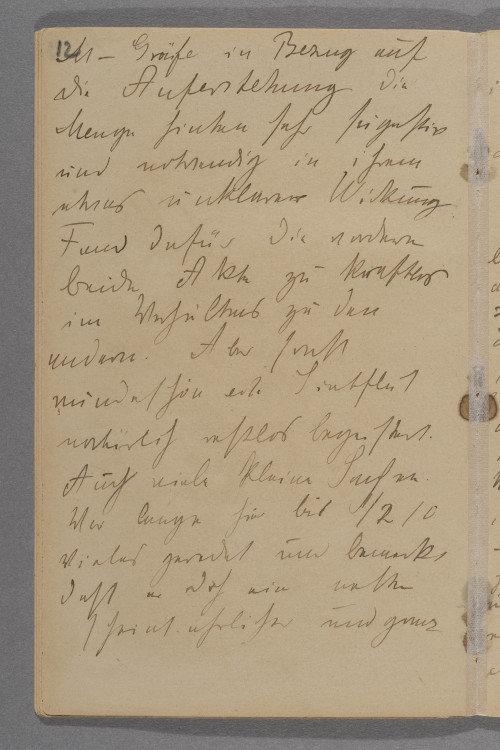 12
M – Gräfe in Bezug auf
die Auferstehung die
Menge hinten sehr suggestiv
und notwendig in ihrem
etwas unklaren Wirkung
Fand dafür die vordern
beiden Akte zu kraftlos
im Verhältnis zu den
andern. Aber sonst
wunderschön Sintflut
natürlich restlos begeistert.
Auch viele kleine Sachen.
War lange hier bis 1/2 10
vieles geredet und bemerkt
daß er doch ein netter
scheint ehrlicher und ganz